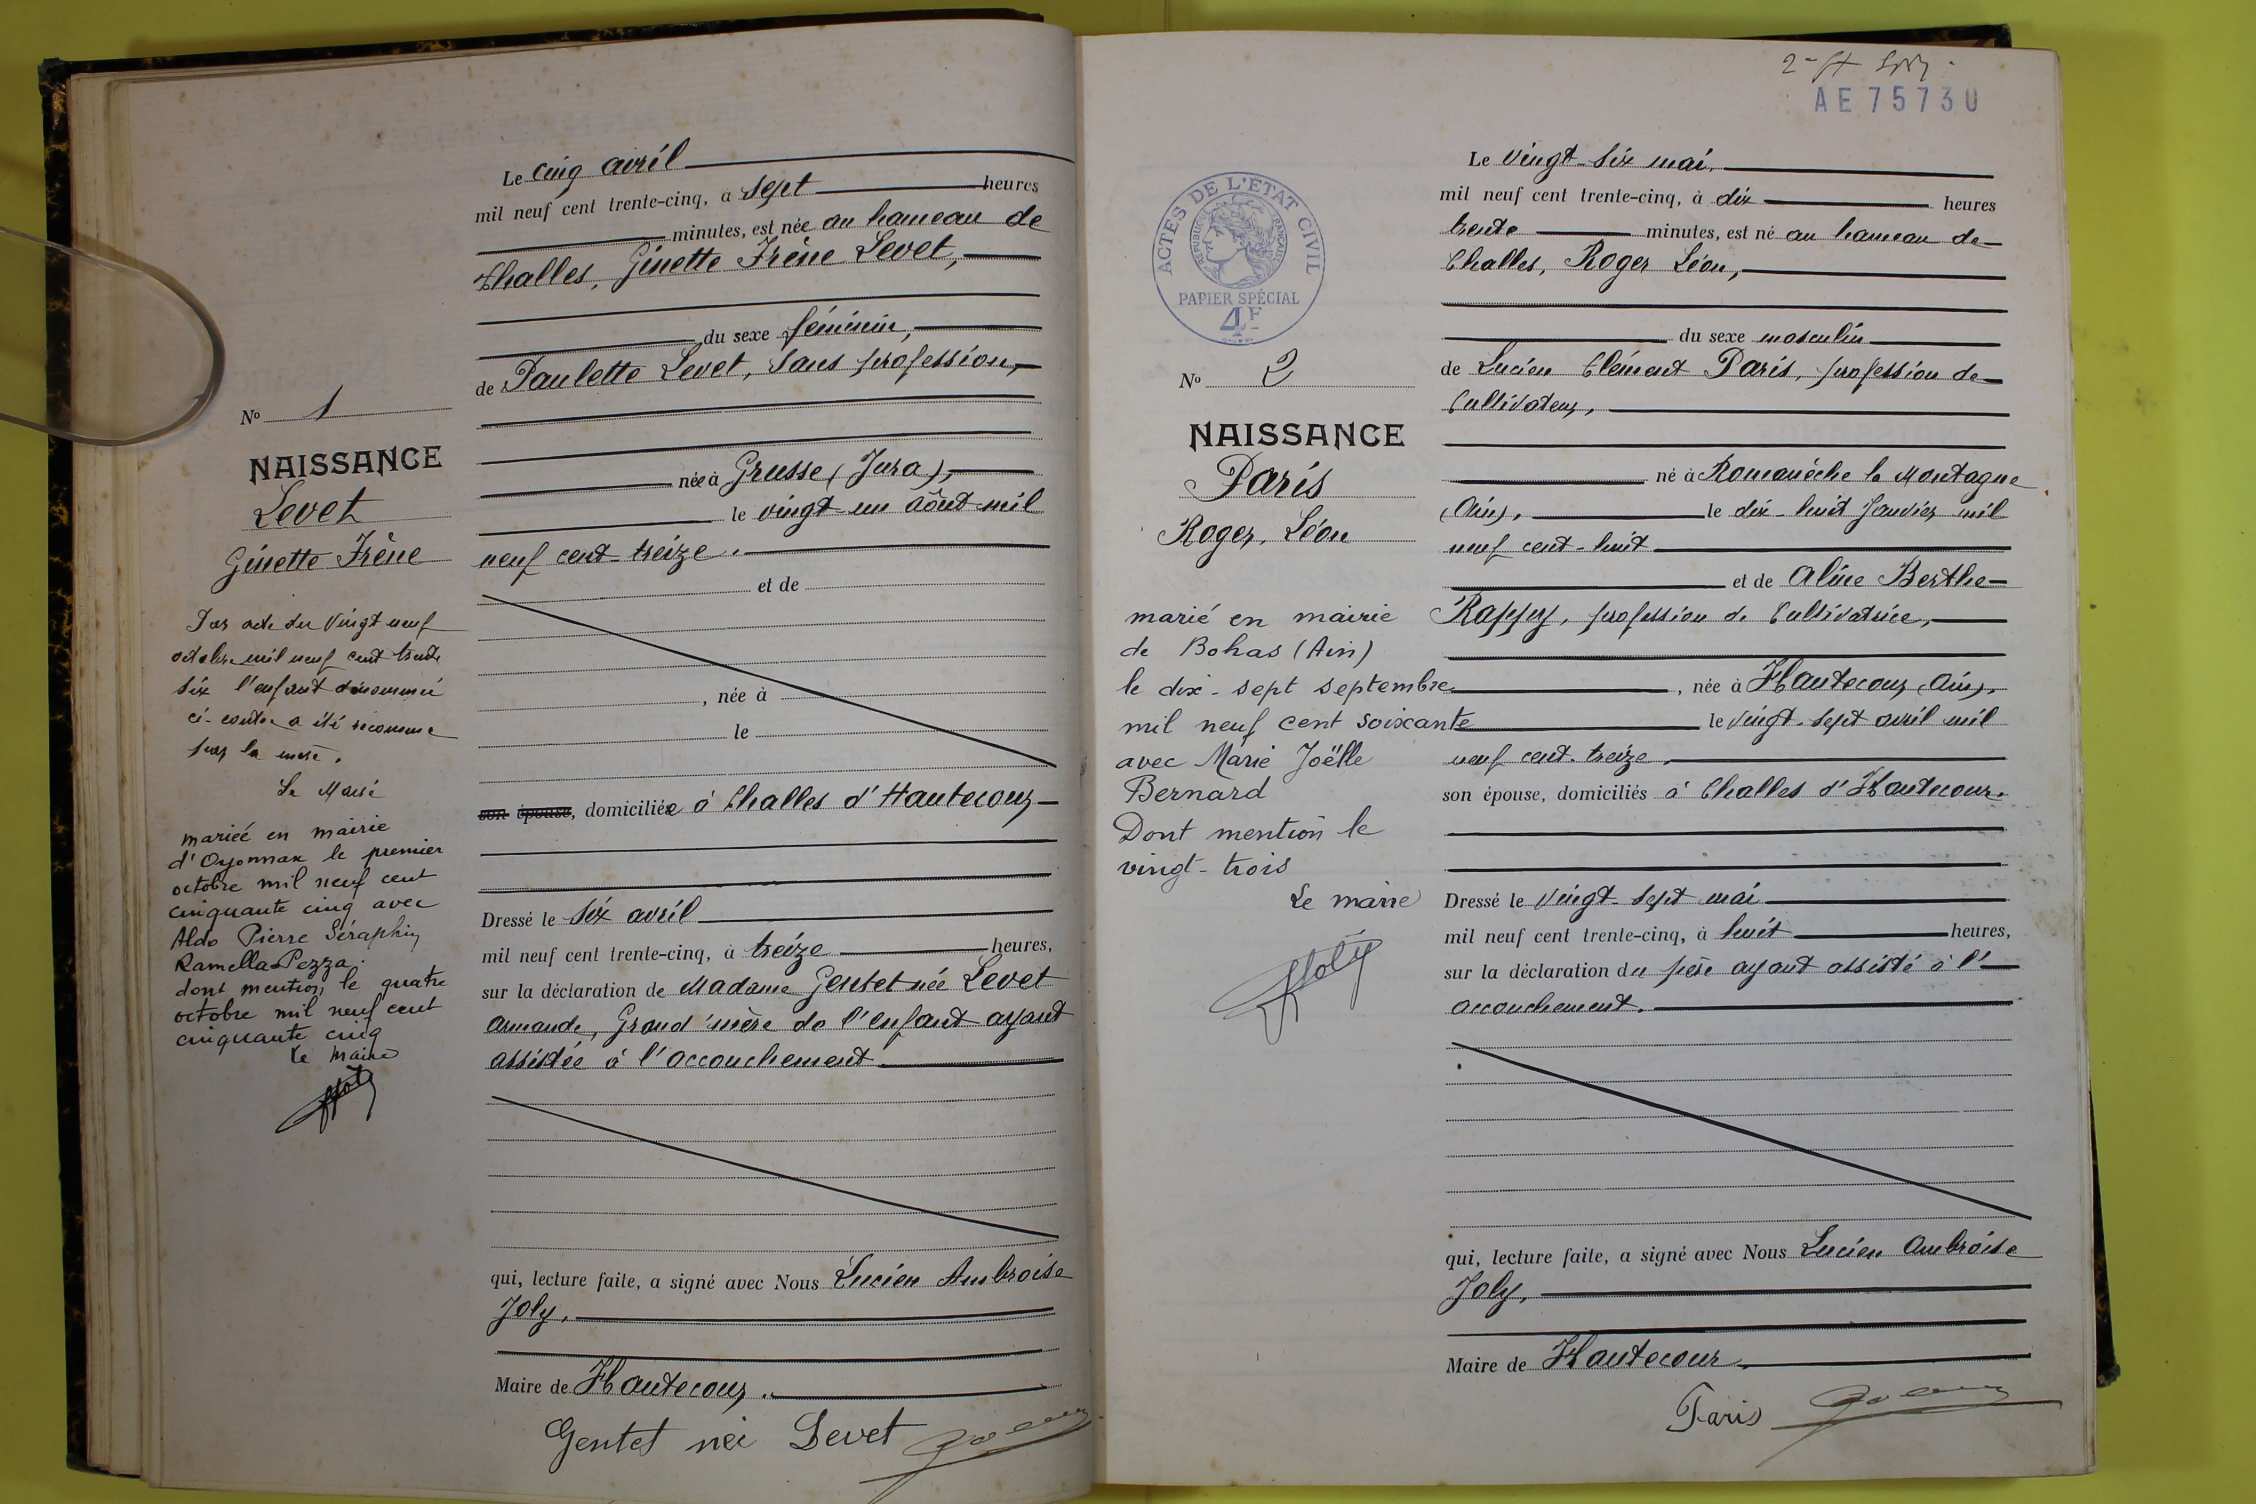 Le cinq avril
mil neuf cent trente-cinq, à sept heures
minutes, est née au hameau de
Challes, Ginette Irène Levet,
du sexe féminin,
de Paulette Levet, sans profession,
née à Grusse (Jura),
le vingt-un août mil
neuf cent-treize.
et de
, née à
le
son épouse, domiciliée à Challes d'Hautecour
Dressé le six avril
mil neuf cent trente-cinq, à treize heures,
sur la déclaration de Madame Gentet née Levet
Armande, Grand'mère de l'enfant ayant
assistée à l'accouchement
qui, lecture faite, a signé avec Nous Lucien Ambroise
Joly,
Maire de Hautecour.
Gentet née Levet
No 1
NAISSANCE
Levet
Ginette Irène
Par acte du vingt neuf
octobre mil neuf cent trente
six l'enfant dénommé
ci-contre a été reconnue
par la mère.
Le Maire
mariée en mairie
d'Oyonnax le premier
octobre mil neuf cent
cinquante cinq avec
Aldo Pierre Séraphin
Ramella-Pezza.
dont mention le quatre
octobre mil neuf cent
cinquante cinq
Le Maire
Joly
AE75730
Le vingt-six mai,
mil neuf cent trente-cinq, à dix heures
trente minutes, est né au hameau de
Challes, Roger Léon,
du sexe masculin
de Lucien Clément Paris, profession de
Cultivateur,
né à Romanèche la Montagne
(Ain), le dix-huit Janvier mil
neuf cent-huit
et de Aline Berthe
Rappy, profession de Cultivatrice,
, née à Hautecour (Ain),
le vingt-sept avril mil
neuf cent-treize,
son épouse, domiciliés à Challes d'Hautecour.
Dressé le vingt-sept mai
mil neuf cent trente-cinq, à huit heures,
sur la déclaration du père ayant assisté à l'
accouchement.
qui, lecture faite, a signé avec Nous Lucien Ambroise
Joly,
Maire de Hautecour.
Paris
ACTES DE L'ETAT CIVIL
REPUBLIQUE FRANÇAISE
PAPIER SPÉCIAL
4F
No 2
NAISSANCE
Paris
Roger, Léon
marié en mairie
de Bohas (Ain)
le dix-sept septembre
mil neuf cent soixante
avec Marie Joëlle
Bernard
Dont mention le
vingt-trois
Le maire
Joly